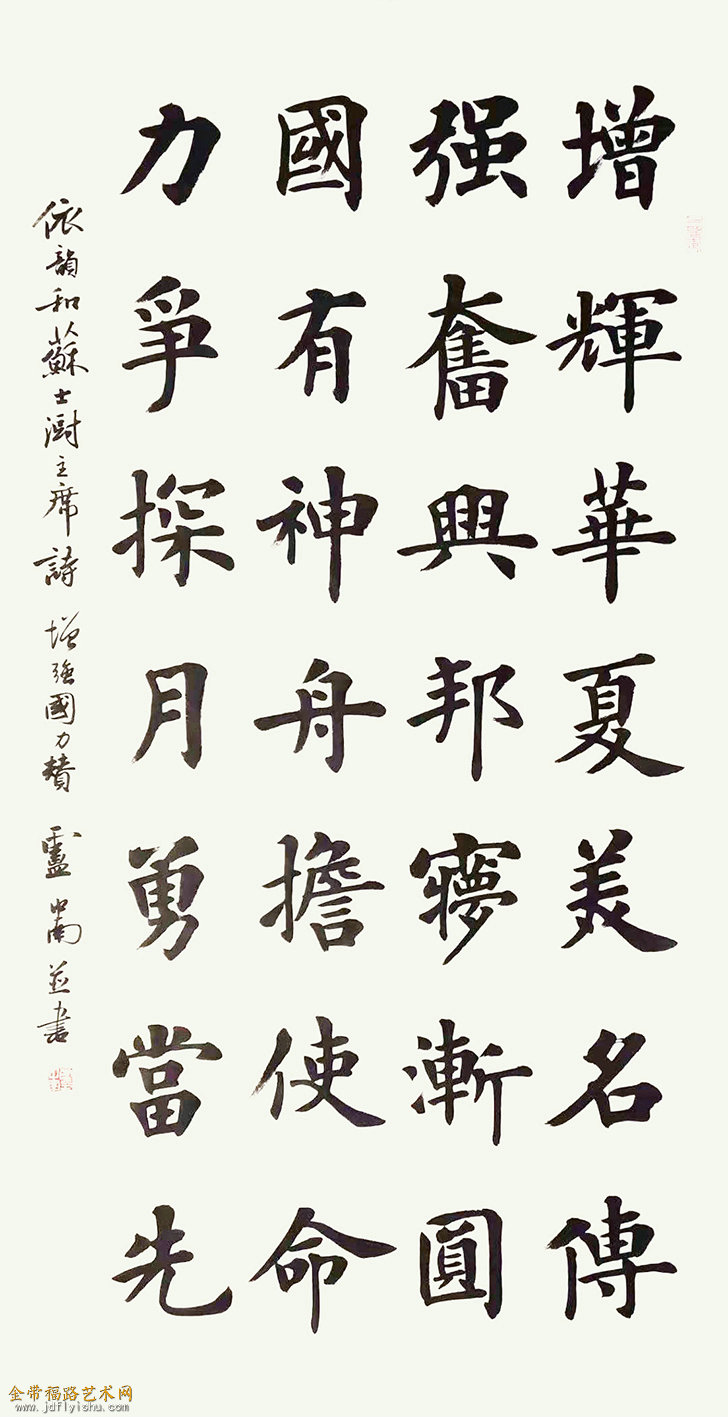 增輝華夏美名傳
强奮興邦寢漸圓
國有神舟擔使命
力爭探月勇當先
依韻和蘇士澍主席詩 增強國力贊 盧 並書
金带福路艺术网
www.jdflyishu.com